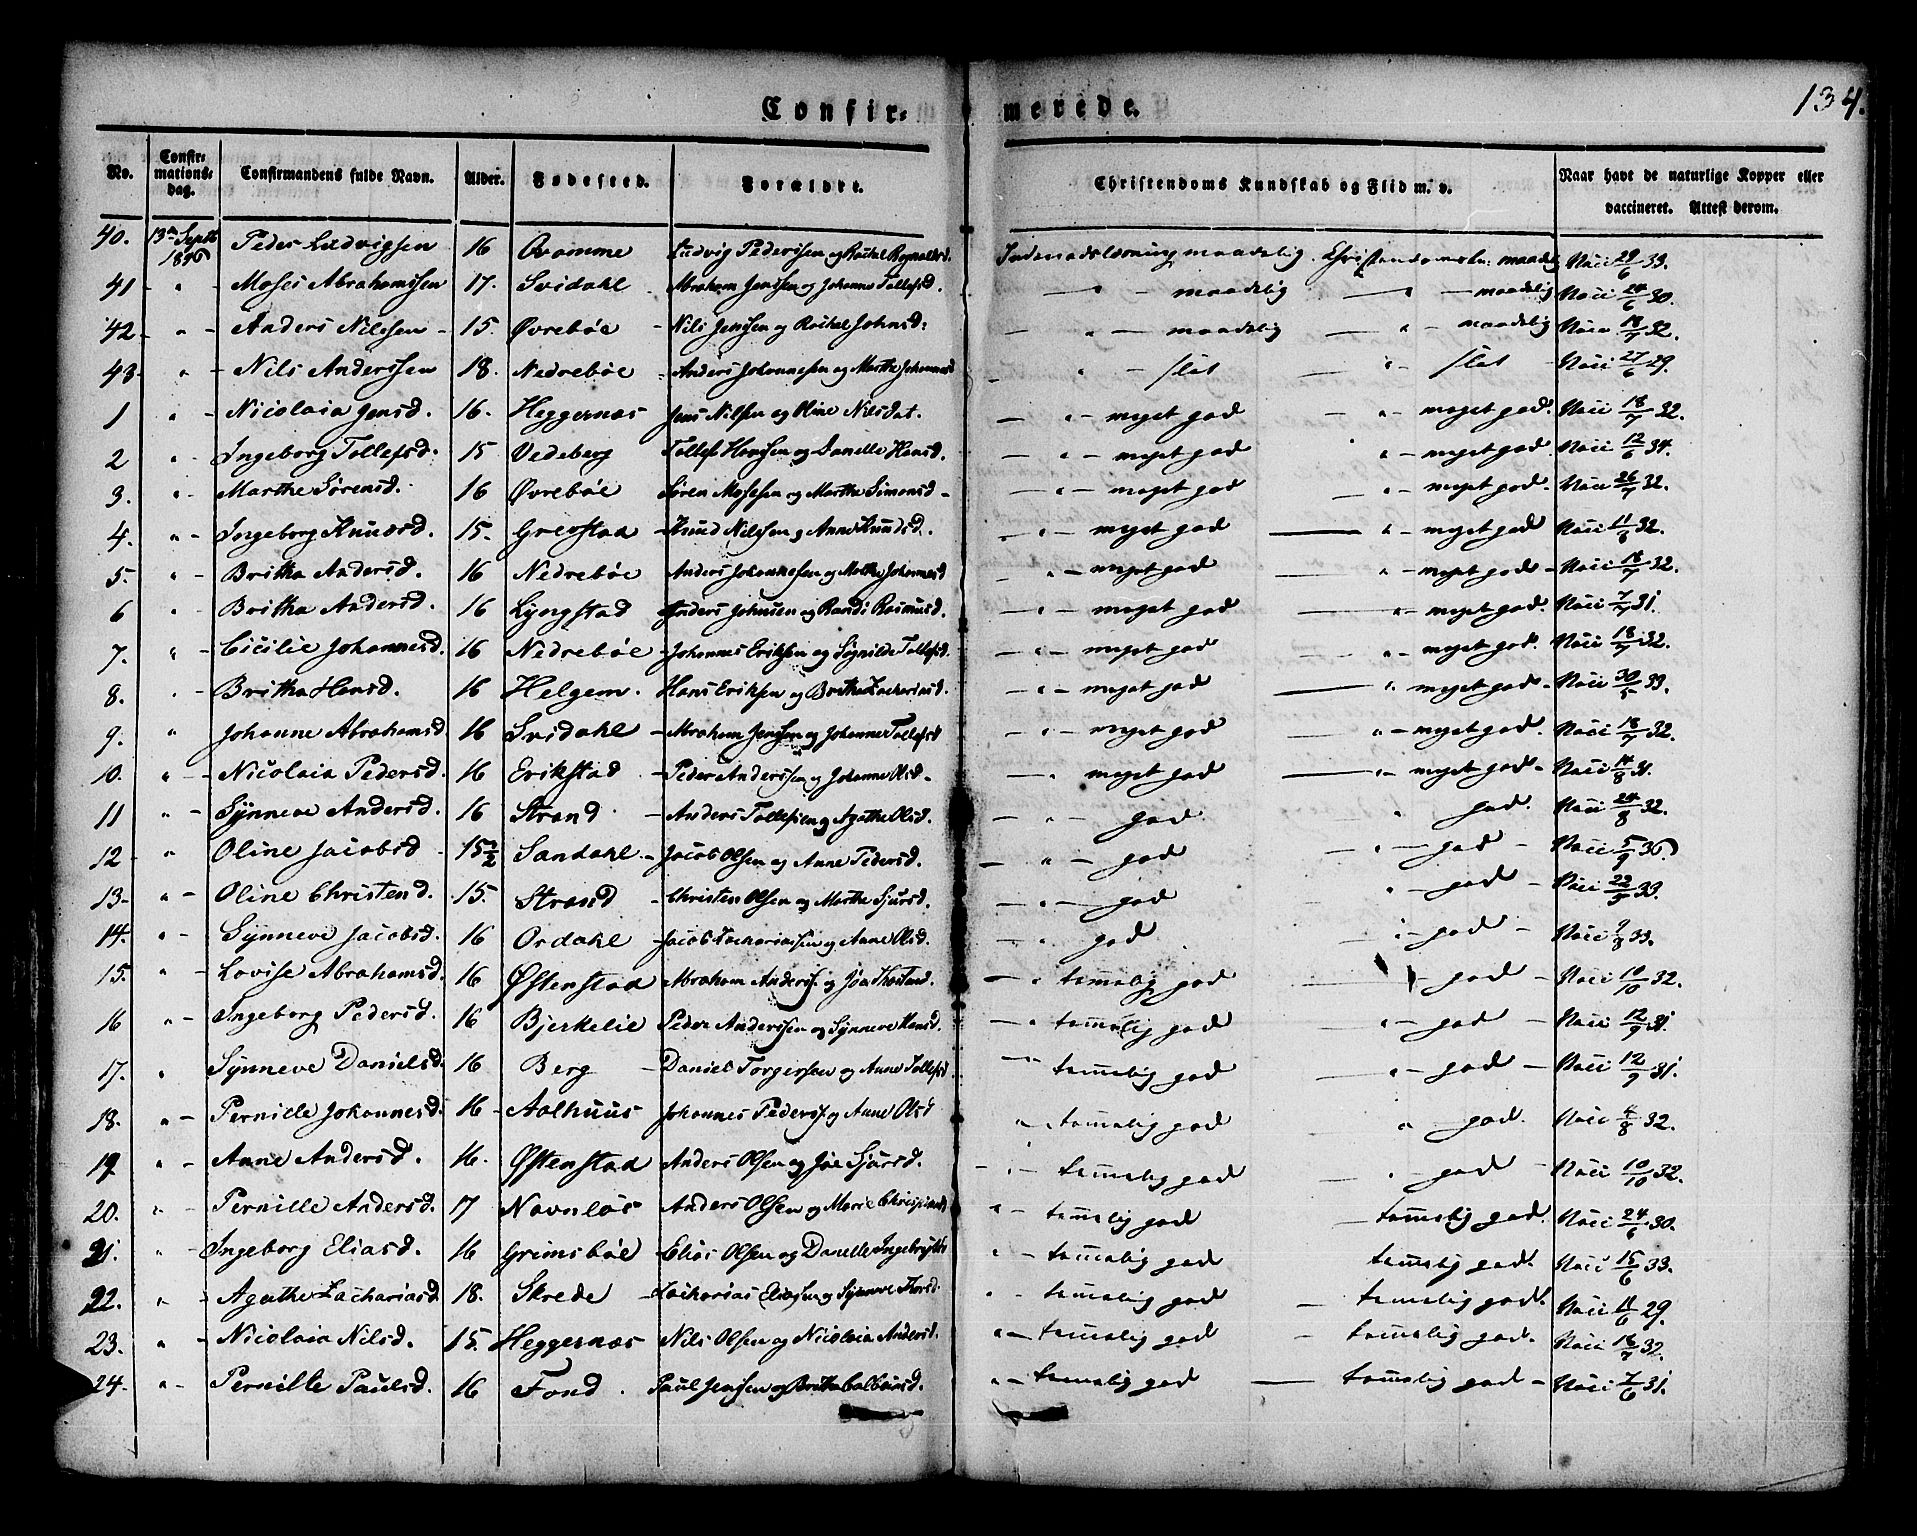 134.
Confirmerede.
No. Confirmationsdag. Confirmandens fulde Navn. Alder. Fødested. Forældre. Christendoms Kundskab og Flid m. v. Naar havt de naturlige Kopper eller vaccineret. Attest derom.
40. 13de Septb 1846 Peder Ludvigsen 16 Ludvig Pederssen og Rachel maadelig. maadelig Vacc 29/6 33.
41 " Moses Abrahamssen 17. Svidahl Abraham Jenssen og Johanne Tollefsd. " maadelig " maadelig Vacc 24/6 30.
42 " Anders Nilssen 15. Øvrebøe Nils Jenssen og Rachel Johnsd: " maadelig " maadelig Vacc 18/7 32.
43 " Nils Anderssen 18. Nedrebøe Anders Johannesen og Marthe Johannesd " slet " slet Vacc 27/6 29.
1 " Nicolaia Jensd. 16. Heggernæs Jens Nilsen og Oline Nilsdat. " meget god " meget god. Vacc 18/7 32.
2 " Ingeborg Tollefsd. 15 Vedeberg Tollef Hanssen og Danelle Hansd. " meget god " meget god. Vacc 12/6 34.
3. " Marthe Sørensd. 16 Øvrebøe Søren Mosesen og Marthe Simonsd " meget god " meget god. Vacc 26/7 32.
4. " Ingeborg Knudsd. 15. Grevstad Knud Nilssen og Anne Knudsd. " meget god " meget god Vacc 11/6 32.
5. " Britha Andersd. 16 Nedrebøe Anders Johannesen og Marthe Johannesd " meget god " meget god Vacc 18/7 32.
6 " Britha Andersd. 16 Lyngstad Anders Johnsen og Randi Rasmusd. " meget god " meget god. Vacc 7/7 31.
7. " Cicilie Johannesd. 16 Nedrebøe Johannes Erikssen og Signilde Tollefsd. " meget god " meget god. Vacc 18/7 32.
8. " Britha Hansd. 16 Helgem. Hans Eriksen og Britha Zachariasd. " meget god " meget god Vacc 30/5 33.
9. " Johanne Abrahamsd 16 Svidahl Abraham Jenssen og Johanne Tollefsd " meget god " meget god. Vacc 18/7 32.
10. " Nicolaia Pedersd. 16 Erikstad Peder Anderssen og Johanne Olsd. " meget god " meget god Vacc 14/8 31.
11 " Synneve Andersd. 16 Strand Anders Tollefsen og Agathe Olsd. " god " god. Vacc 24/8 32.
12 " Oline Jacobsd 15 1/2 Sandahl Jacob Olsen og Anne Pedersd. " god " god Vacc 5/9 36.
13. " Oline Christend. 15. Strand Christen Olsen og Marthe Sjursd. " god " god Vacc 22/5 33.
14. " Synneve Jacobsd. 16 Ordahl Jacob Zachariassen og Anne Olsd. " god " god Vacc 9/8 33.
15. " Lovise Abrahamsd. 16 Østenstad Abraham Anderss. og Joa " temelig god god Vacc 10/10 32.
16 " Ingeborg Pedersd. 16 Bjerkelie Peder Anderssen og Synneve Hansd. " temelig god " god Vacc 12/9 31.
17. " Synneve Danielsd. 16 Berg Daniel Torgersen og Anne Tollefsd. temelig god " god Vacc 12/9 31.
18. " Pernille Johannesd. 16 Aalhuus Johannes Peders. og Anne Olsd " temelig god " god. Vacc 4/8 32.
19 " Anne Andersd. 16. Østenstad Anders Olsen og Joa Sjursd. " temelig god " god Vacc 10/10 32.
20. " Pernille Andersd. 17 Navnløs Anders Olssen og Marie " temelig god temelig god. Vacc 24/6 30.
21. " Ingeborg Eliasd. 16 Grimsbøe Elias Olsen og Danelle " temelig god temelig god. Vacc 15/6 33.
22. " Agathe Zachariasd. 18. Skrede Zacharias Eliassen og Synneve " temelig god temelig god. Vacc 11/6 29.
23. " Nicolaia Nilsd. 15. Heggernæs Nils Olssen og Nicolaia Andersd. " temelig god temelig god. Vacc 18/7 32.
24. " Pernille Paulsd. 16 Fond. Paul Jenssen og Britha " temelig god temelig god Vacc 7/6 31.